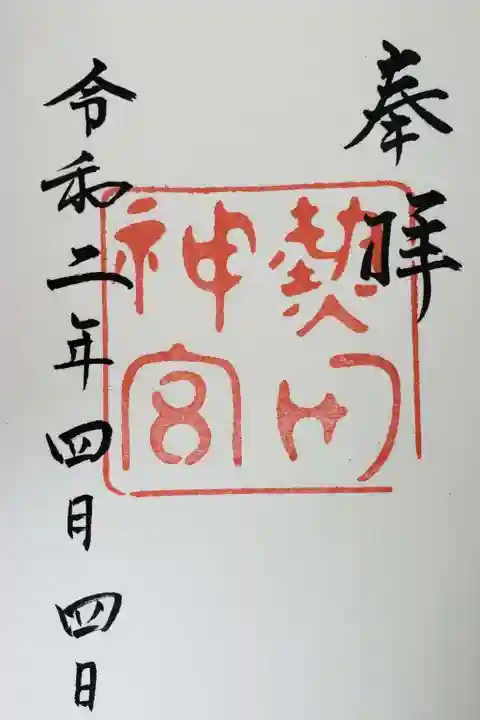 奉拝
熱田
神宮
令和二年四月四日